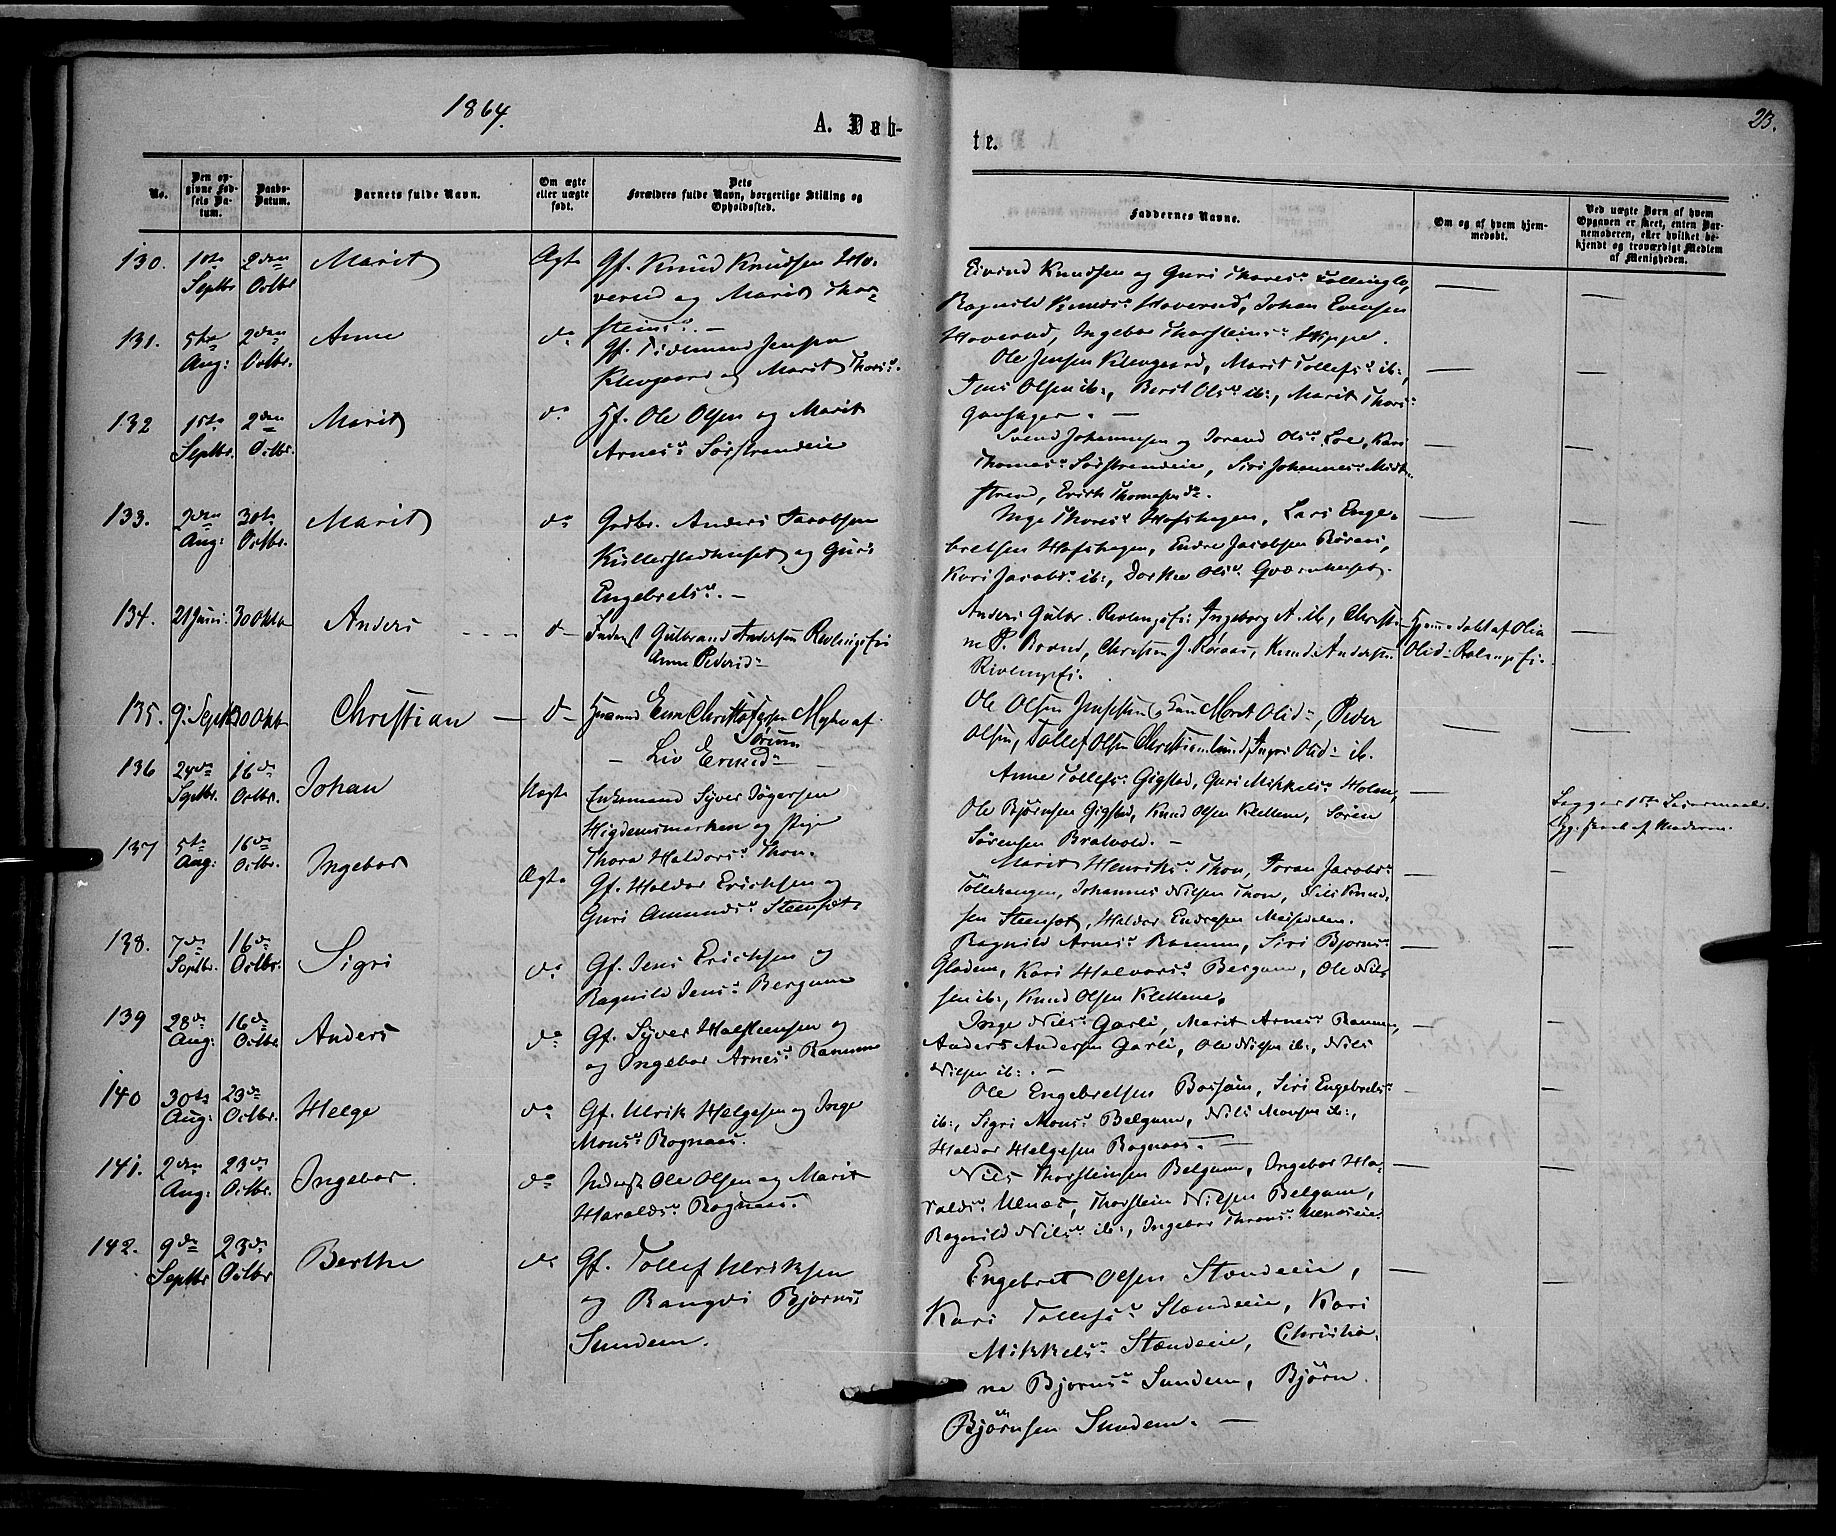 1864.
A. Døb-
te.
23.
No.
Den op-
givne Fød-
sels Da-
tum.
Daabs-
Datum.
Barnets fulde Navn.
Om ægte
eller uægte
født.
Dets
Forældres fulde Navn, borgerlige Stilling og
Opholdssted.
Faddernes Navne.
Om og af hvem hjem-
medøbt.
Ved uægte Børn af hvem
Opgaven er skeet, enten Bar-
nemoderen, eller hvilket be-
kjendt og troværdigt Medlem
af Menigheden.
130. 1ste Septbr. 2den Octbr. Marit Ægte
Gf. Knud Knudsen Ho-
verud og Marit Thor-
steinsd. —
Eivind Knudsen og Guri Thoresd.
Ragnild Knudsd. Hoverud, Johan Evensen
Hoverud, Ingebor Thorsteinsd. Hippe.
131. 5te Aug: 2den Octbr. Anne do
Gf. Tidemand Jensen
Klevgaard og Marit Thorisd.
Ole Jensen Klevgaard, Marit Tollefsd. ib:,
Jens Olsen ib:, Berit Olsd. ib:, Marit Thorsd.
132 1ste Septbr. 2den Octbr. Marit do
Gf. Ole Olsen og Marit
Arnesd. Sørstrandeie
Svend Johannesen og Jorand Olsd. Loe, Kari
Thomasd. Sørstrandeie, Siri Johannesd. Midt-
strand, Erick Thomesen do.
133. 2den Aug: 30te Octbr. Marit do
Gdbr. Anders Jacobsen
Kullerstadhuset og Guri
Engebretsd. —
Inge Thoresd. Hofshagen, Lars Enge-
bretsen Hofshagen, Endre Jacobsen Røraas,
Kari Jacobsd. ib:, Dorthea Olsd. Qværnhuset.
134. 21 Juni. 30 Oktb Anders d—
Inderst Gulbrand Andersen Revlingsei
Anne Pedersd.
Anders Gulbr. Revlingsei Ingeborg A. ib, Christi-
ne P. Brænd, Christen J. Røraas, Knud Andersen
Revlingsei.
Hjemmedøbt af Olia
Olsd.
135. 9. Septb 30 Oktb Christian — d—
Husmd Even Christofersen Myhre af
Sørum
— Liv Ersd. —
Ole Olsen Marit Olsd., Peder
Olsen, Tollef Olsen Christianlund, Ingri Olsd. ib.
136 24de Septbr. 16de Octbr. Johan Uægte
Enkemand Syver Jøgersen
Høgdensmarken og Pige
Thora Haldorsd. Thon.
Anne Tollefsd. Gigstad, Guri Mikkelsd. Holen,
Ole Bjørnsen Gigstad, Knud Olsen Klettene, Søren
Sørensen Bratvold. —
Begges 1ste Leiermaal.
Opg. skeet af Moderen.
137 5te Aug: 16de Octbr. Ingebor Ægte
Gf. Haldor Ericksen og
Guri Amundsd. Steenset
Marit Henriksd. Thon, Joran Jacobsd.
Tollehaugen, Johannes Nilsen Thon, Nils Knud-
sen Steenset, Haldor Endresen
138. 7de Septbr. 16de Octbr. Sigri do
Gf. Jens Ericksen og
Ragnild Jensd. Bergum
Ragnild Arnesd. Ranum, Siri Bjornsd.
Gladem, Kari Halvorsd. Bergum, Ole Nil-
sen ib:, Knud Olsen Klettene.
139 28de Aug: 16de Octbr. Anders do
Gf. Syver Halsteensen og
og Ingebor Arnesd. Ranum
Inge Nilsd. Garli, Marit Arnesd. Ranum,
Anders Andersen Garli, Ole Nilsen ib:, Nils
Nilsen ib:. —
140 30te Aug: 23de Octbr. Helge do
Gf. Ulrik Helgesen og Inge
Monsd. Rognaas.
Ole Engebretsen Siri Engebretsd.
ib:, Sigri Monsd. Belgum, Nils Monsen ib:,
Haldor Helgesen Rognaas. —
141. 2den Aug: 23de Octbr. Ingebor. do
Inderst Ole Olsen og Marit
Haraldsd. Rognaas.
Nils Thorsteinsen Belgum, Ingebor Ha-
raldsd. Ulnæs, Thorstein Nilsen Belgum,
Ragnild Nilsd. ib:, Ingebor Thronsd. Ulnæseie.
142. 9de Septbr 23de Octbr Berthe do
Gf. Tollef Ulriksen
og Rangdi Bjornsd
Sundem.
Engebret Olsen Strandeie,
Kari Tollefsd. Strandeie, Kari
Mikkelsd. Strandeie, Christia-
ne Bjornsd. Sundem, Bjørn
Bjørnsen Sundem. —